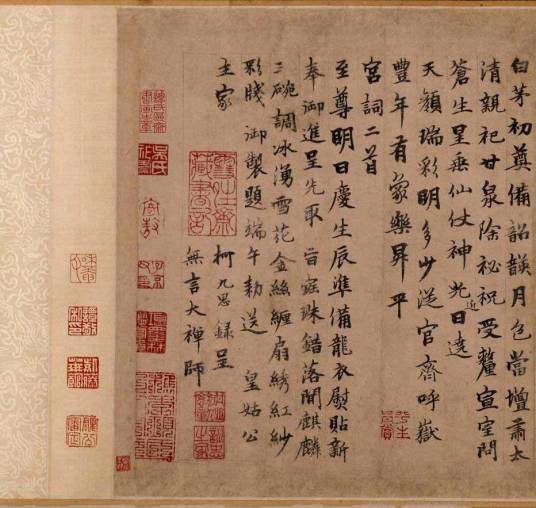 白茅初奠備韶韺月色當壇肅太
清親祀甘泉除祕祝受釐宣室問
蒼生星垂仙仗神光近日遶
天顏瑞彩明多少從官齊呼嶽
豐年有象樂昇平
宮詞二首
至尊明日慶生辰準備龍衣熨貼新
奉御進呈先取旨珠錯落間麒麟
三碗調冰湧雪花金絲纏扇綉紅紗
彩牋御製題端午勑送皇姑公
主家
柯九思錄呈
無言大禪師